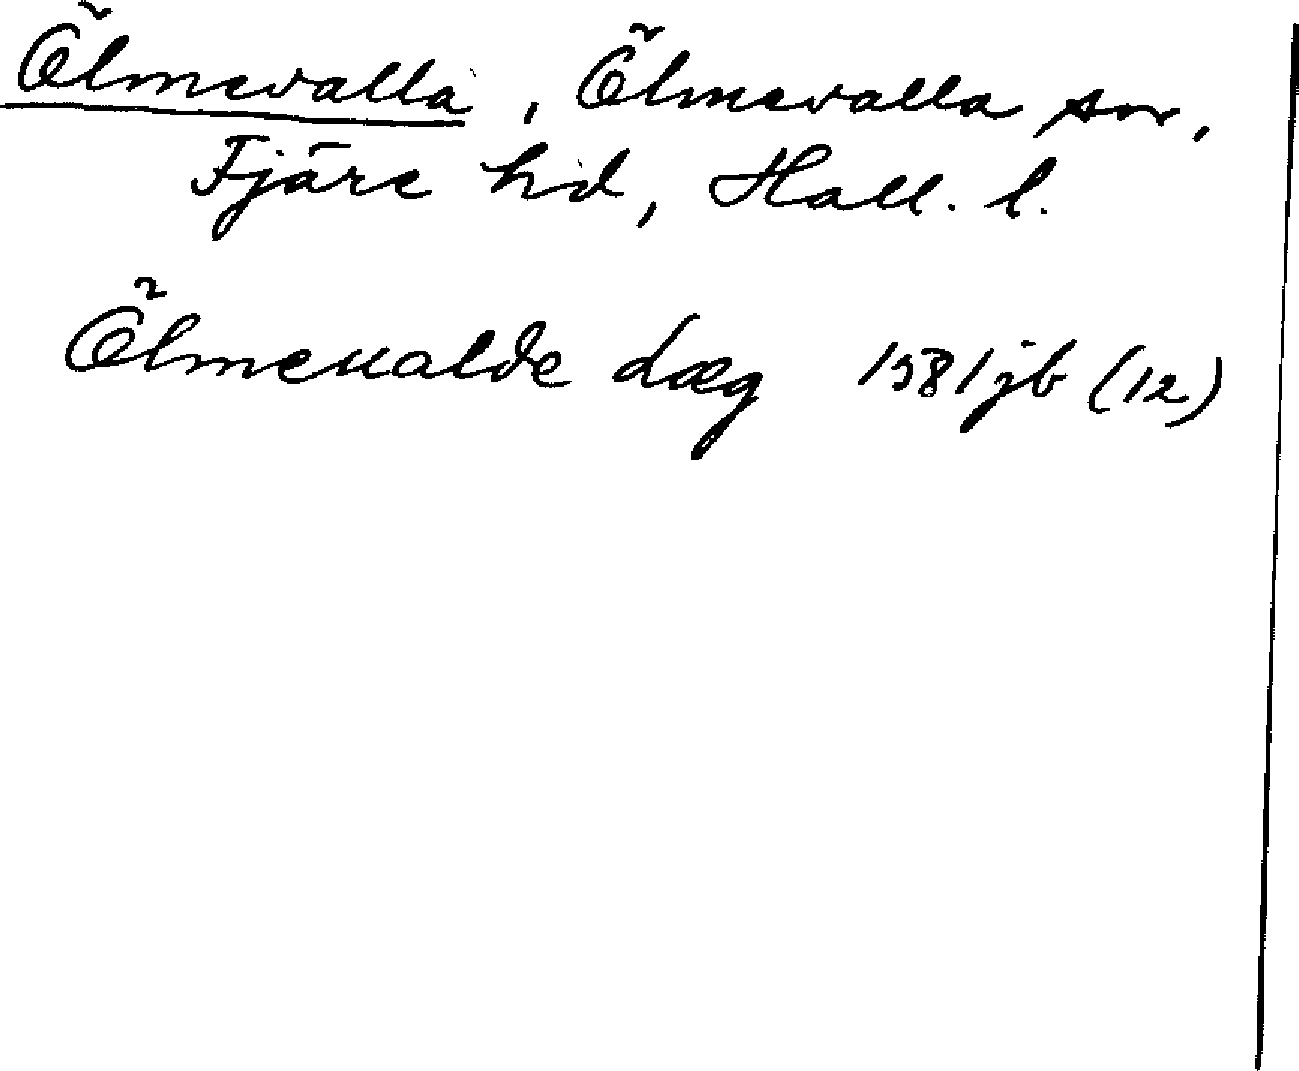 Ölmevalla, Ölmevalla sn,
Fjäre hd, Hall. l.
Ölmeualde læg 1581 jb (12)